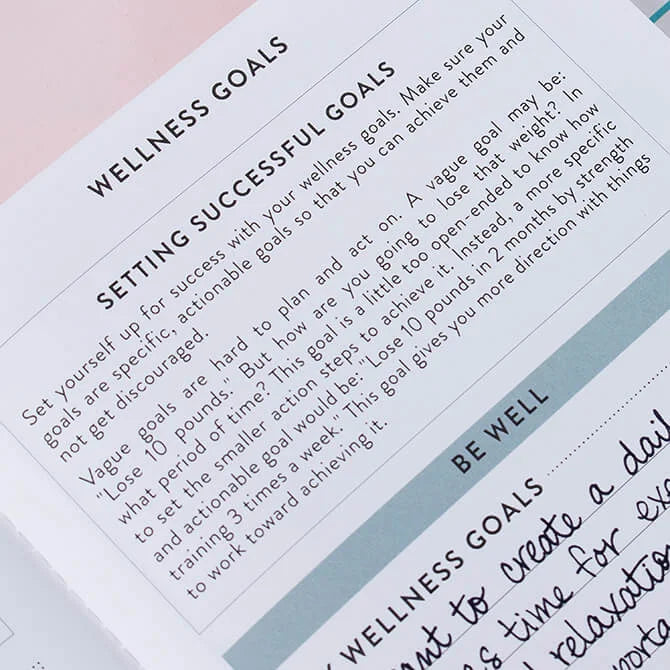 WELLNESS GOALS
SETTING SUCCESSFUL GOALS
Set yourself up for success with your wellness goals. Make sure your
goals are specific, actionable goals so that you can achieve them and
not get discouraged.
Vague goals are hard to plan and act on. A vague goal may be:
"Lose 10 pounds." But how are you going to lose that weight? In
what period of time? This goal is a little too open-ended to know how
to set the smaller action steps to achieve it. Instead, a more specific
and actionable goal would be: "Lose 10 pounds in 2 months by strength
training 3 times a week. This goal gives you more direction with things
to work toward achieving it.
BE WELL
WELLNESS GOALS
to create a
time for
relaxation